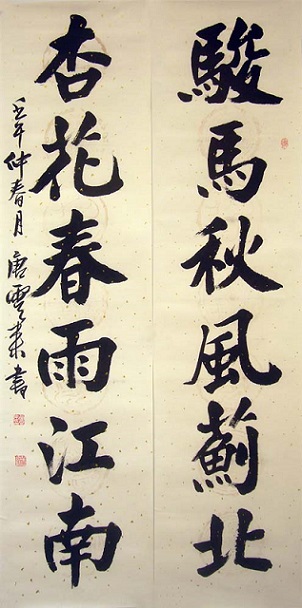 駿馬秋風薊北
杏花春雨江南
壬午仲春月唐雲來書